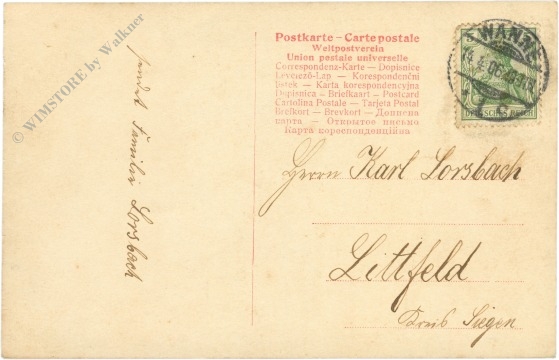 © WIMSTORE by Walkner
Familie Lorsbach
Postkarte – Carte postale
Weltpostverein
Union postale universelle
Correspondenz-Karte – Dopisnice
Levelező-Lap – Korespondenční
lístek – Karta korespondencyjna
Dopisnica – Briefkaart – Postcard
Cartolina Postale – Tarjeta Postal
Brefkort – Brevkort – Дописна
карта – Открытое письмо
Карта кореспонденційна
5
WANNE
DEUTSCHES REICH
Herrn Karl Lorsbach
Littfeld
Kreis Siegen